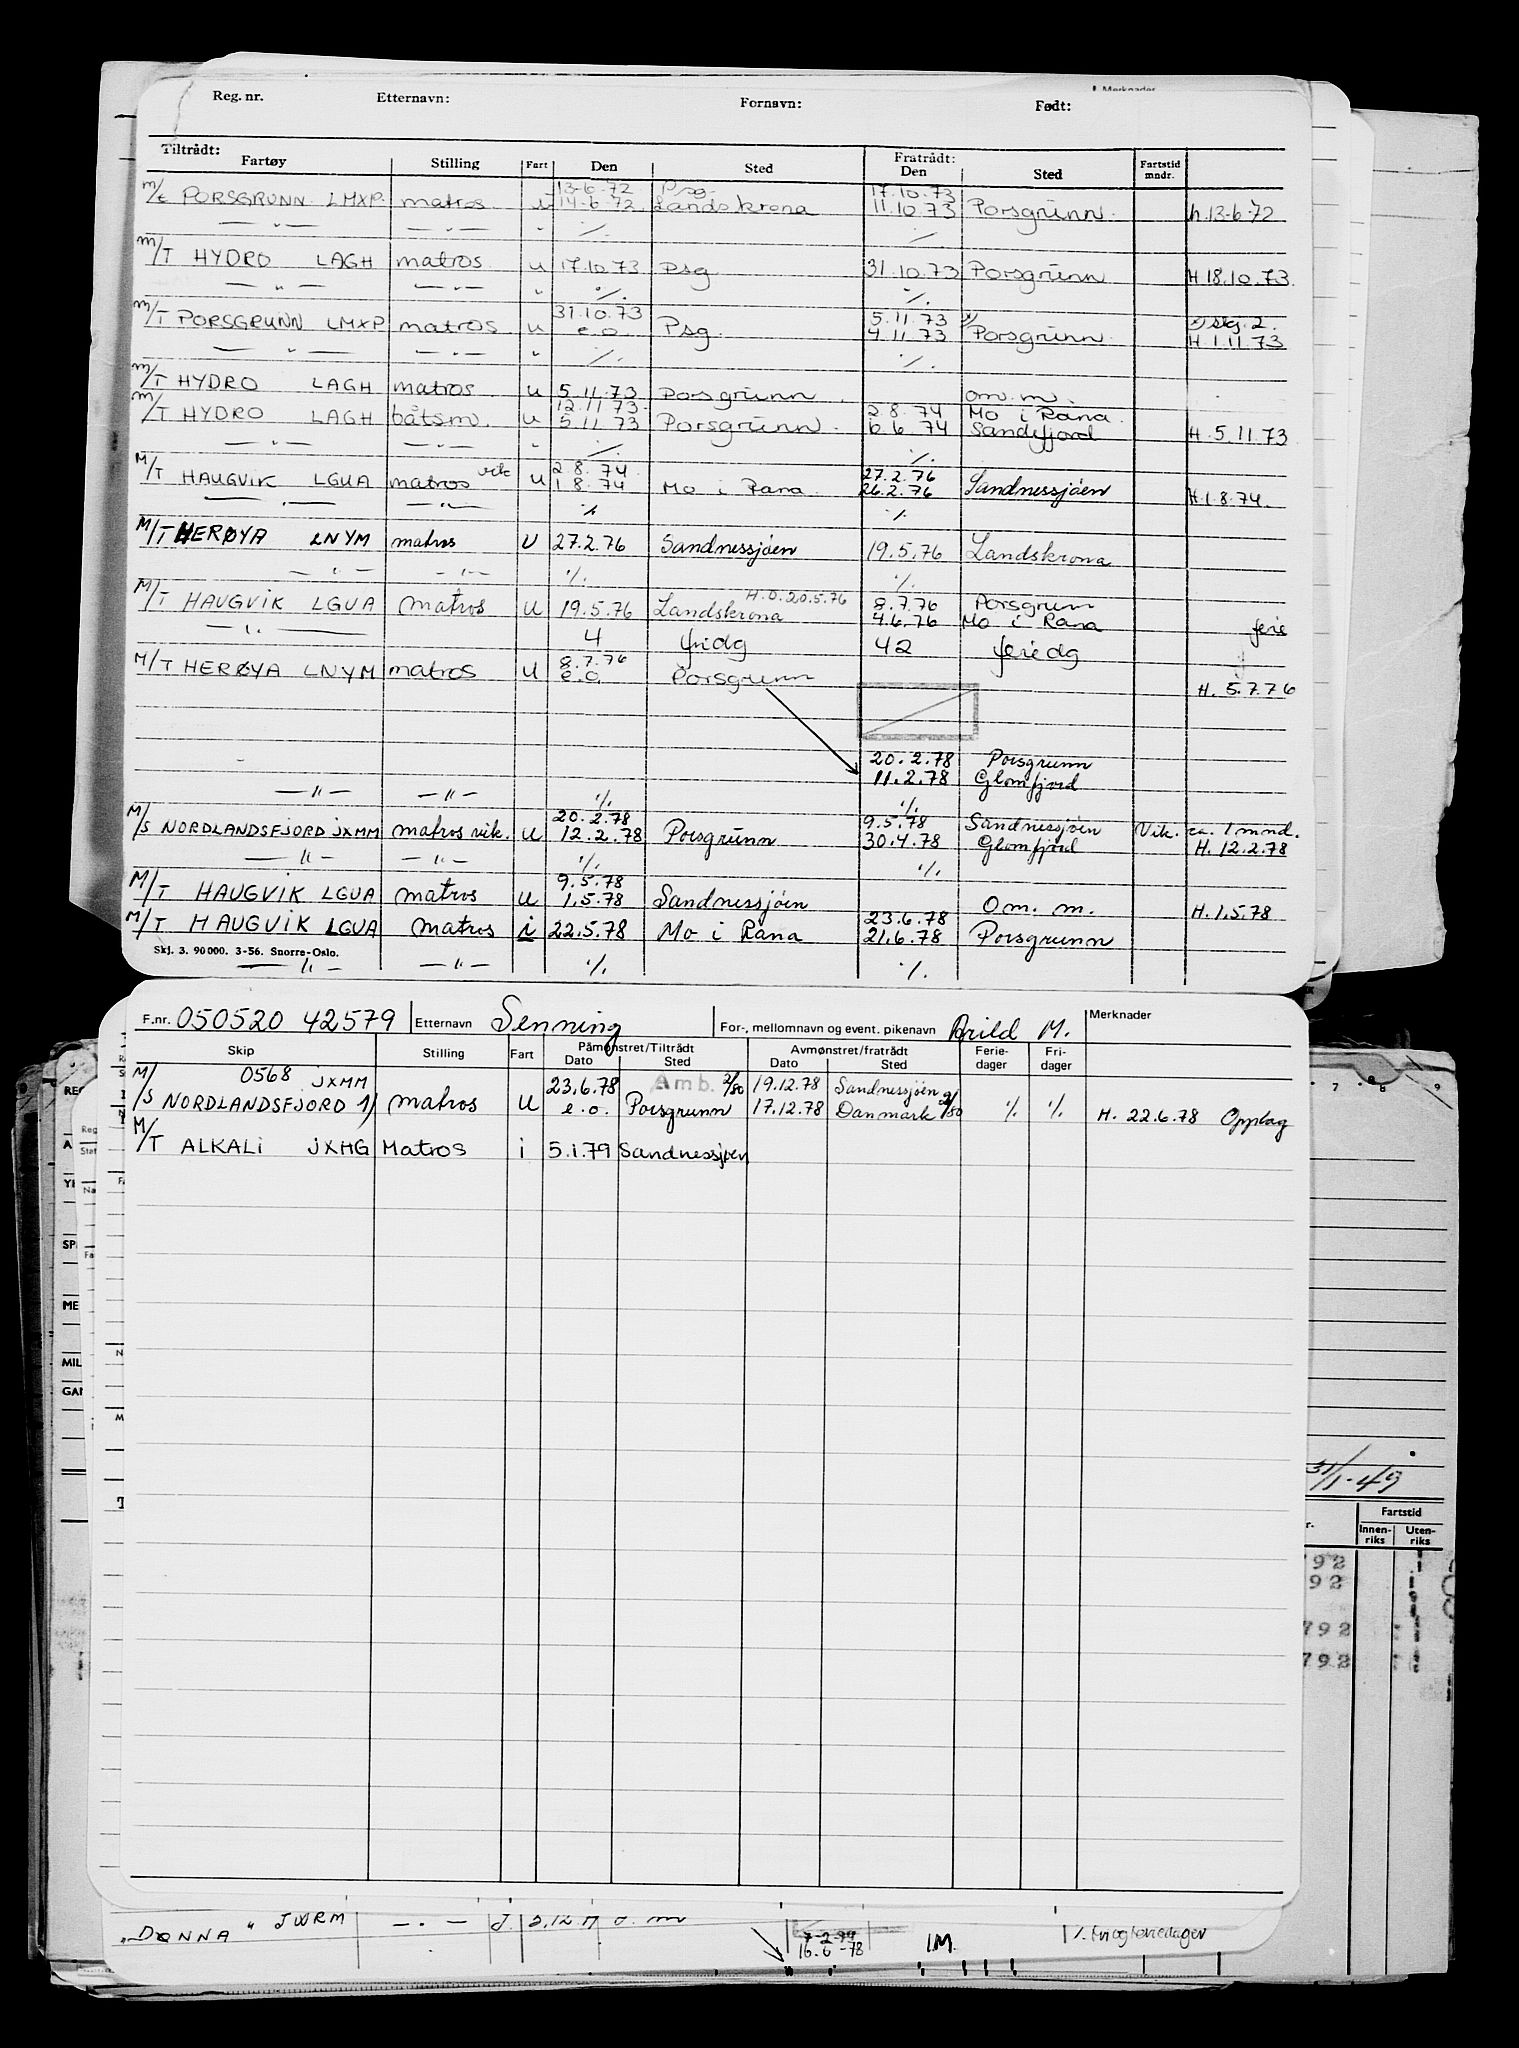 Merknader
Reg. nr. Etternavn: Fornavn: Født:
Tiltrådt: Fratrådt:
Fartøy Stilling Fart Den Sted Den Sted Fartstid mndr.
13-6-72 Psg. 17.10.73
M/t PORSGRUNN LMXP. matros u 14-6-72 Landskrona 11.10.73 Porsgrunn. h.13-6-72
— " — — " — " ·/. ·/.
M/T HYDRO LAGH matros u 17.10.73 Psg 31.10.73 Porsgrunn H 18.10.73.
— " — — " — " ·/. ·/.
31.10.73 5.11.73 skj. 2.
M/T PORSGRUNN LMXP matros u e.o. Psg. 4.11.73 Porsgrunn. H.1.11.73
— " — — " — " ·/. ·/.
M/T HYDRO LAGH matros u 5.11.73 Porsgrunn. om.m.
12.11.73. 2.8.74 Mo i Rana.
M/T HYDRO LAGH båtsm. u 5.11.73 Porsgrunn. 6.6.74 Sandefjord H.5.11.73
— " — — " — " ·/. ·/.
2.8.74 27.2.76
M/T HAUGVIK LGUA matros vik u 1.8.74 Mo i Rana. 26.2.76 Sandnessjøen H.1.8.74.
— " — — " — ·/. ·/.
M/T HERØYA LNYM matros U 27.2.76 Sandnessjøen 19.5.76 Landskrona
— " — — " — ·/. ·/.
H.O.20.5.76 8.7.76 Porsgrunn
M/T HAUGVIK LGUA matros U 19.5.76 Landskrona 4.6.76 Mo i Rana ferie
— " — 4 fridg 42 feriedg
8.7.76
M/T HERØYA LNYM matros U e.o. Porsgrunn H. 5.7.76
20.2.78 Porsgrunn
11.2.78 Glomfjord
— " — — " — ·/. ·/.
20.2.78 9.5.78 Sandnessjøen
M/S NORDLANDSFJORD JXMM matros vik. u 12.2.78 Porsgrunn 30.4.78 Glomfjord Vik. ca. 1 mnd. H. 12.2.78
— " — — " — ·/. ·/.
9.5.78
M/T HAUGVIK LGUA matros u 1.5.78 Sandnessjøen Om. m. H.1.5.78
23.6.78
M/T HAUGVIK LGUA matros i 22.5.78 Mo i Rana 21.6.78 Porsgrunn
Skj. 3. 90 000. 3-56. Snorre-Oslo.
— " — — " — ·/. ·/.
F.nr. 050520 42579 Etternavn Senning For-, mellomnavn og event. pikenavn Arild M. Merknader
Skip Stilling Fart Påmønstret/Tiltrådt Dato Sted Avmønstret/fratrådt Dato Sted Ferie-dager Fri-dager
0568 JXMM 23.6.78 Amb. 2/80 19.12.78 Sandnessjøen
M/S NORDLANDSFJORD 1) matros U e.o. Porsgrunn 17.12.78 Danmark 2/80 ·/. ·/. H. 22.6.78 Opplag
M/T ALKALI JXHG Matros i 5.1.79 Sandnessjøen
31/1-49
Fartstid
Innen-riks Uten-riks
792
92
792
792
"DONNA" JWRM — " — J. o. m
16.6-78 I.M. ·/. fri og feriedager